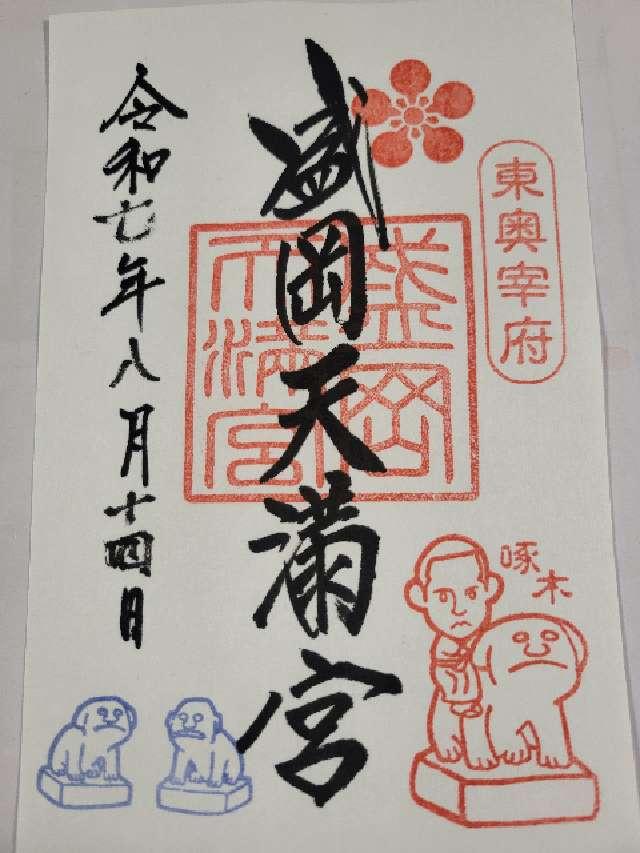 東奥宰府
盛岡天満宮
盛岡
天満宮
啄木
令和七年八月十四日